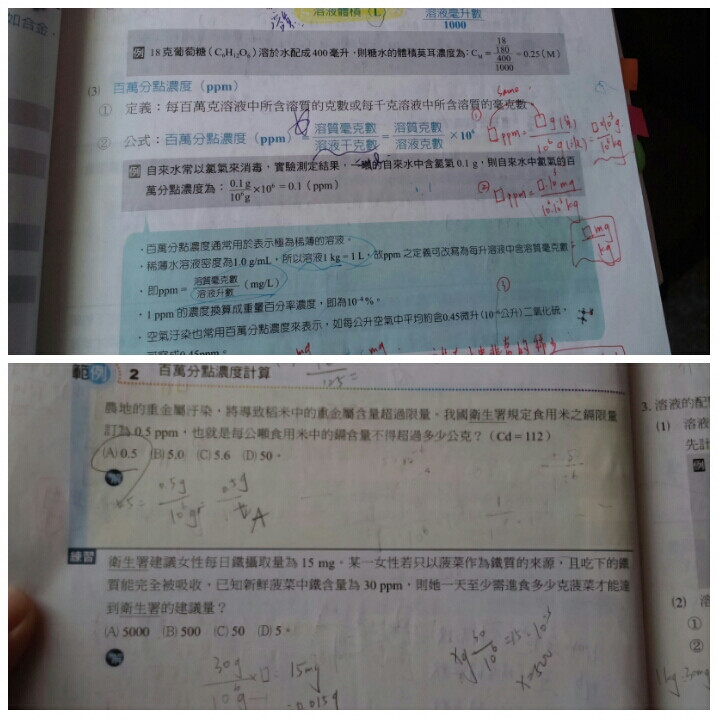 如合金，
溶液體積（L）
溶液毫升數
1000
例 18克葡萄糖（C₆H₁₂O₆）溶於水配成400毫升，則糖水的體積莫耳濃度為：C_M = 18/180 / 400/1000 = 0.25 (M)
(3) 百萬分點濃度（ppm）
① 定義：每百萬克溶液中所含溶質的克數或每千克溶液中所含溶質的毫克數
② 公式：百萬分點濃度（ppm）= 溶質毫克數/溶液千克數 = 溶質克數/溶液克數 ×10⁶
例 自來水常以氯氣來消毒，實驗測定結果，一噸的自來水中含氯氣0.1 g，則自來水中氯氣的百
萬分點濃度為：0.1 g/10⁶ g ×10⁶ = 0.1（ppm）
① □ppm = □g/10⁶g
② □ppm =
□mg/kg
・百萬分點濃度通常用於表示極為稀薄的溶液。
・稀薄水溶液密度為1.0 g/mL，所以溶液1 kg = 1 L，故ppm之定義可改寫為每升溶液中含溶質毫克數
・即ppm = 溶質毫克數/溶液升數（mg/L）
・1 ppm 的濃度換算成重量百分率濃度，即為10⁻⁴%。
・空氣汙染也常用百萬分點濃度來表示，如每公升空氣中平均約含0.45微升（10⁻⁶公升）二氧化硫，
範例 2 百萬分點濃度計算
農地的重金屬汙染，將導致稻米中的重金屬含量超過限量。我國衛生署規定食用米之鎘限量
訂為0.5 ppm，也就是每公噸食用米中的鎘含量不得超過多少公克？（Cd = 112）
(A) 0.5 (B) 5.0 (C) 5.6 (D) 50。
練習 衛生署建議女性每日鐵攝取量為 15 mg。某一女性若只以菠菜作為鐵質的來源，且吃下的鐵
質能完全被吸收，已知新鮮菠菜中鐵含量為 30 ppm，則她一天至少需進食多少克菠菜才能達
到衛生署的建議量？
(A) 5000 (B) 500 (C) 50 (D) 5。
30g/10⁶g × □ = 15mg
0.015g
x = 500
3. 溶液的配
(1) 溶液
先計
例
(2) 溶
①
②